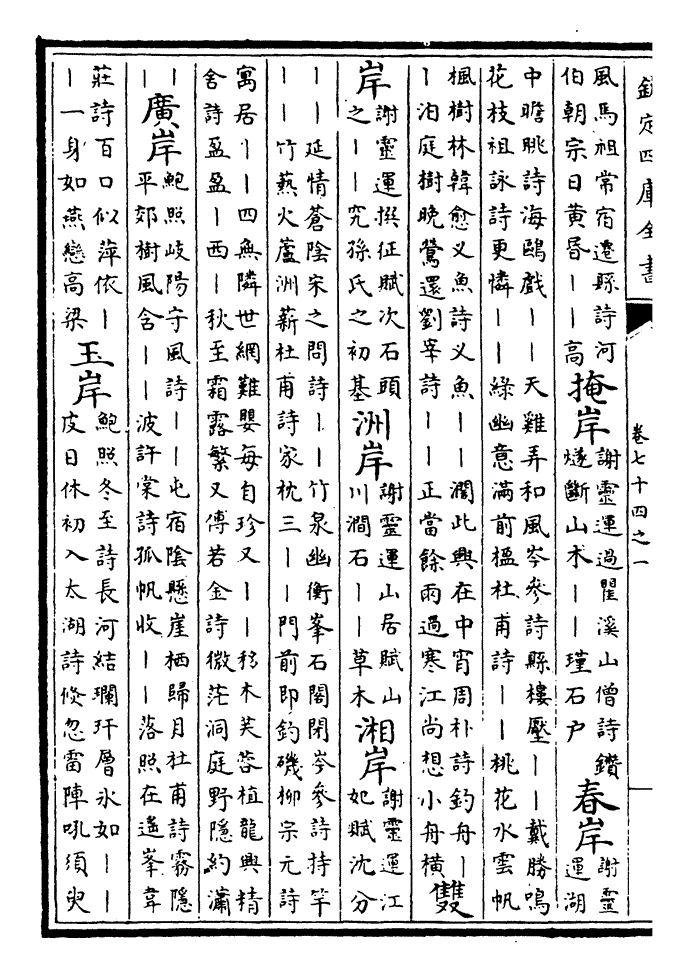 欽定四庫全書 卷七十四之一
風馬祖常宿遷縣詩河
伯朝宗日黃昏丨丨高
掩岸
謝靈運過瞿溪山僧詩鑽
燧斷山木丨丨瑾石户
春岸
謝靈
運湖
中瞻眺詩海鷗戲丨丨天雞弄和風岑參詩縣樓壓丨丨戴勝鳴
花枝祖詠詩更憐丨丨綠幽意滿前楹杜甫詩丨丨桃花水雲帆
楓樹林韓愈叉魚詩叉魚丨丨濶此興在中宵周朴詩釣舟丨
丨泊庭樹晚鶯還劉宰詩丨丨正當餘雨過寒江尚想小舟橫
雙
岸
謝靈運撰征賦次石頭
之丨丨究孫氏之初基
洲岸
謝靈運山居賦山
川澗石丨丨草木
湘岸
謝靈運江
妃賦沈分
丨丨延情蒼陰宋之問詩丨丨竹泉幽衡峯石閣閉岑參詩持竿
丨丨竹爇火蘆洲薪杜甫詩家枕三丨丨門前即釣磯柳宗元詩
寓居丨丨四無隣世網難嬰每自珍又丨丨移木芙蓉植龍興精
舍詩盈盈丨西丨秋至霜露繁又傅若金詩微茫洞庭野隱約瀟
丨
廣岸
鮑照岐陽守風詩丨丨屯宿陰懸崖栖歸月杜甫詩霧隱
平郊樹風含丨丨波許棠詩孤帆收丨丨落照在遙峯韋
莊詩百口似萍依丨
丨一身如燕戀高梁
玉岸
鮑照冬至詩長河結瓓玕層氷如丨丨
皮日休初入太湖詩倐忽雷陣吼須臾